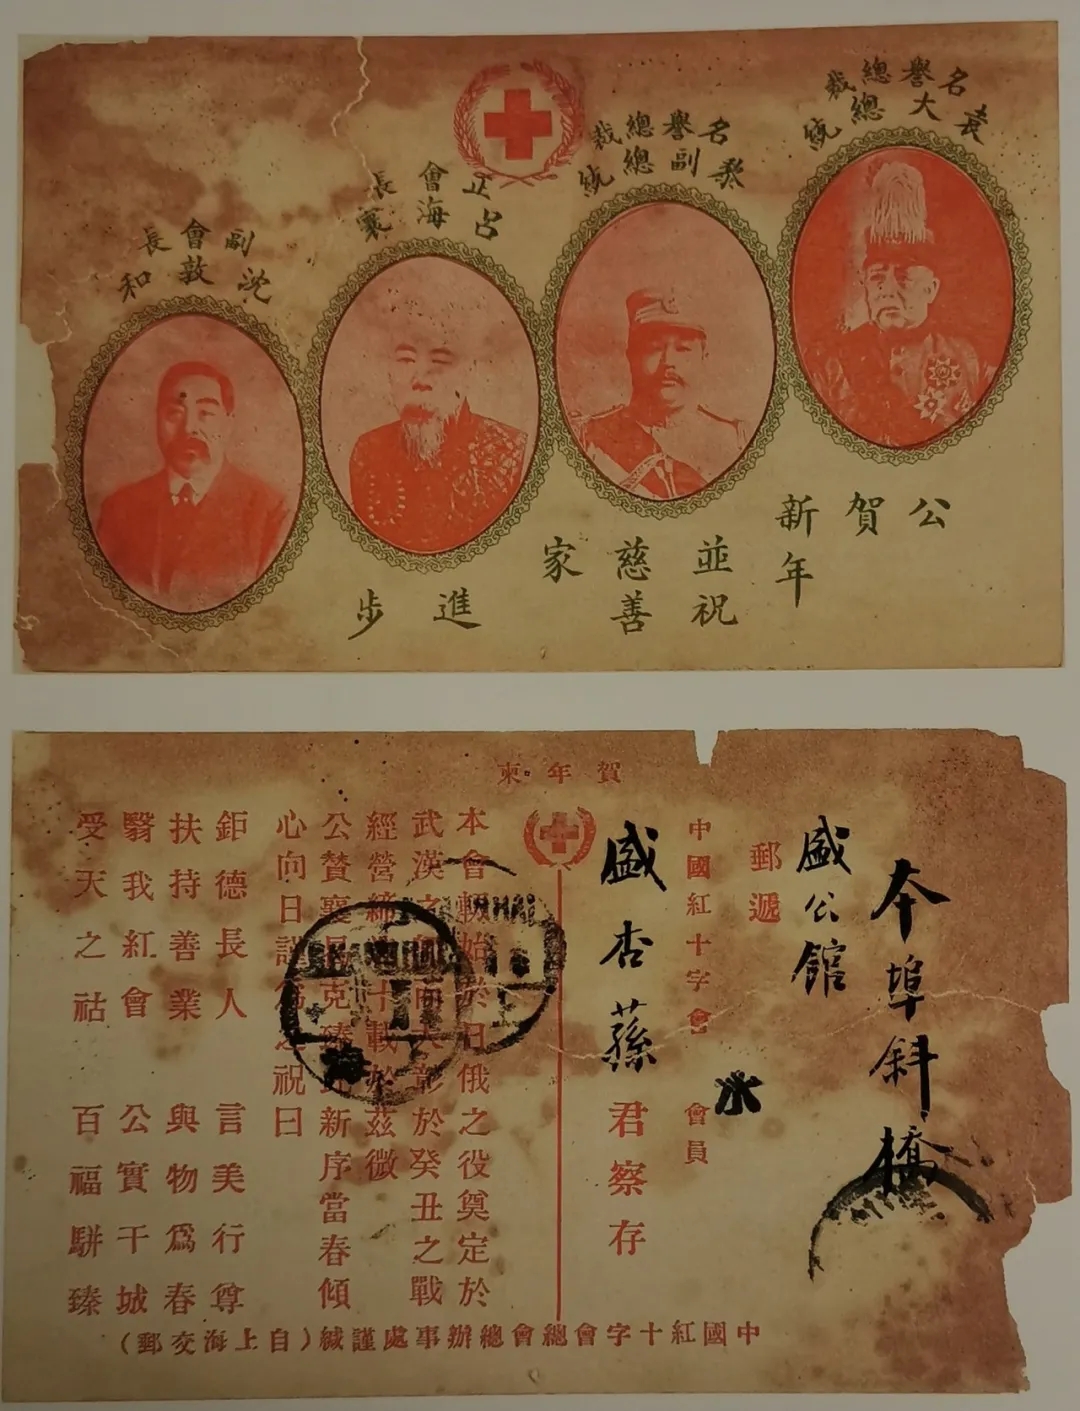 名譽總裁
袁大總統
名譽總裁
黎副總統
正會長
呂海寰
副會長
沈敦和
公賀
新年
並祝
慈善
家
進
步
賀年柬
本埠斜橋
盛公館
郵遞
中國紅十字會 會員
盛杏蓀 君察存
本會軔始於日俄之役奠定於
武漢之 而大彰於癸丑之戰
經營締 十載於茲微
公贊襄 克臻 新序當春傾
心向日 為之祝曰
鉅德長人 言美行尊
扶持善業 與物為春
翳我紅會 公實干城
受天之祜 百福駢臻
中國紅十字會總會總辦事處謹緘(自上海交郵)
SHANGHAI
上
SHANGHAI
海